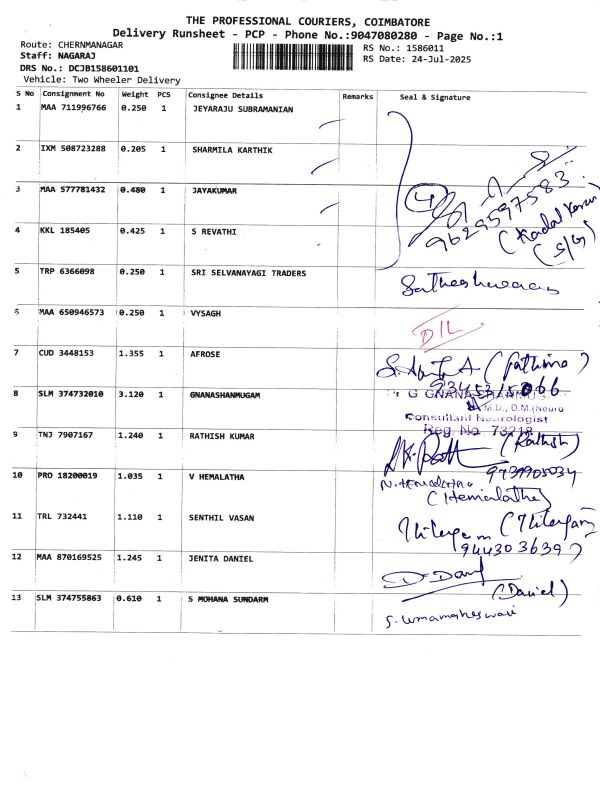 THE PROFESSIONAL COURIERS, COIMBATORE
Delivery Runsheet - PCP - Phone No.:9047080280 - Page No.:1
Route: CHERNMANAGAR RS No.: 1586011
Staff: NAGARAJ RS Date: 24-Jul-2025
DRS No.: DCJB158601101
Vehicle: Two Wheeler Delivery
S No Consignment No Weight PCS Consignee Details Remarks Seal & Signature
1 MAA 711996766 0.250 1 JEYARAJU SUBRAMANIAN
2 IXM 508723288 0.205 1 SHARMILA KARTHIK
3 MAA 577781432 0.480 1 JAYAKUMAR 4
9629597583
4 KKL 185405 0.425 1 S REVATHI (S/G)
5 TRP 6366098 0.250 1 SRI SELVANAYAGI TRADERS
6 MAA 650946573 0.250 1 VYSAGH D/L
7 CUD 3448153 1.355 1 AFROSE (Fathima)
8 SLM 374732010 3.120 1 GNANASHANMUGAM
M.D., D.M.(Neuro
Consultant Neurologist
Reg. No. 73218
9 TNJ 7907167 1.240 1 RATHISH KUMAR (Rathish)
10 PRO 18200019 1.035 1 V HEMALATHA
(Hemalatha)
11 TRL 732441 1.110 1 SENTHIL VASAN
12 MAA 870169525 1.245 1 JENITA DANIEL D. Daniel
(Daniel)
13 SLM 374755863 0.610 1 S MOHANA SUNDARM S. Umamaheswari